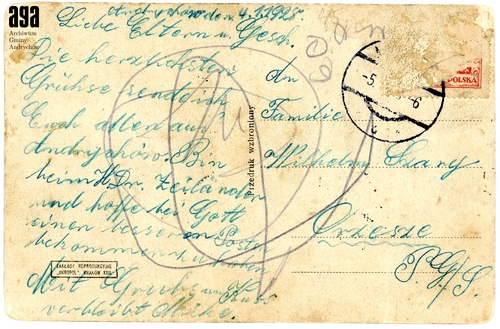 aga
Archiwum
Gminy
Andrychów
Andrychów den 4.1.1928.
Liebe Eltern u. Gesch.
Die herzlichsten
Grühse sende ich
Euch allen aus
Andrychów. Bin
beim H. Dr. Zeiländer
und hoffe bei Gott
einen besseren Posten
bekommen
Mit Gruhs und Kuss
verbleibt
ZAKŁADY REPRODUKCYJNE
"AKROPOL" KRAKÓW XXII.
Przedruk wzbroniony
An
Familie
Wilhelm
Orzesze
P. G/S.
POLSKA
-5.
-6